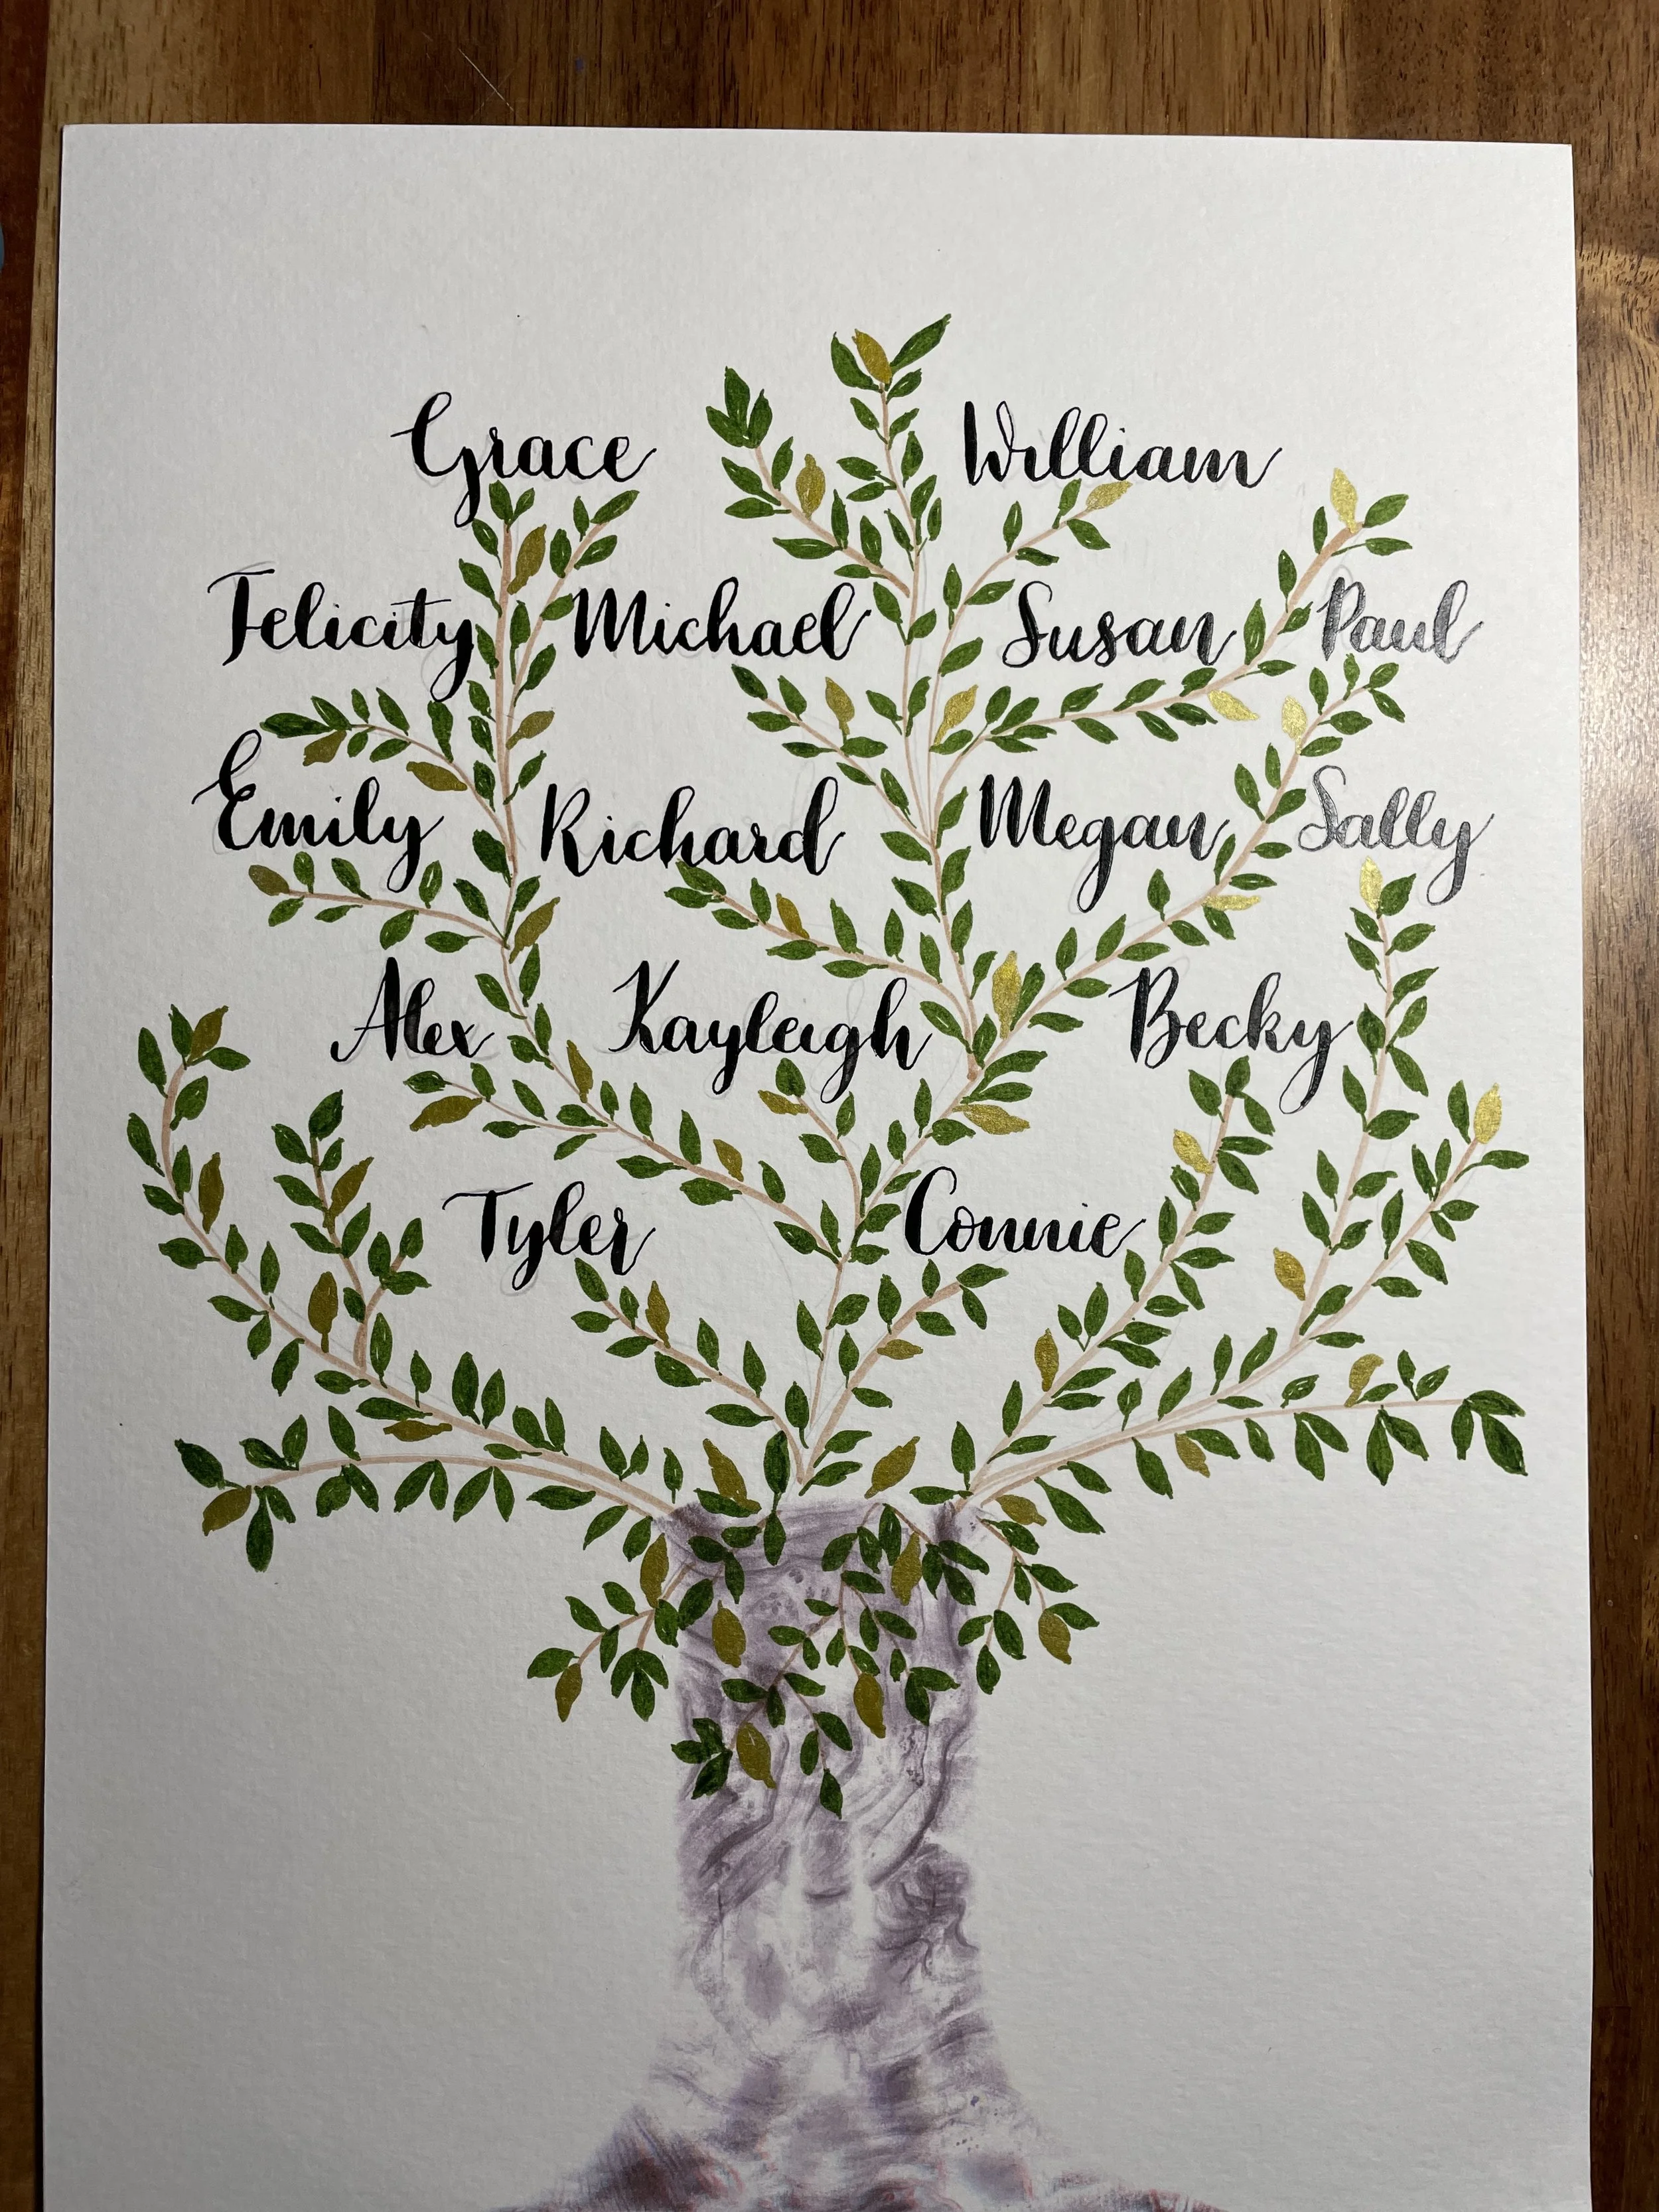 Grace William
Felicity Michael Susan Paul
Emily Richard Megan Sally
Alex Kayleigh Becky
Tyler Connie